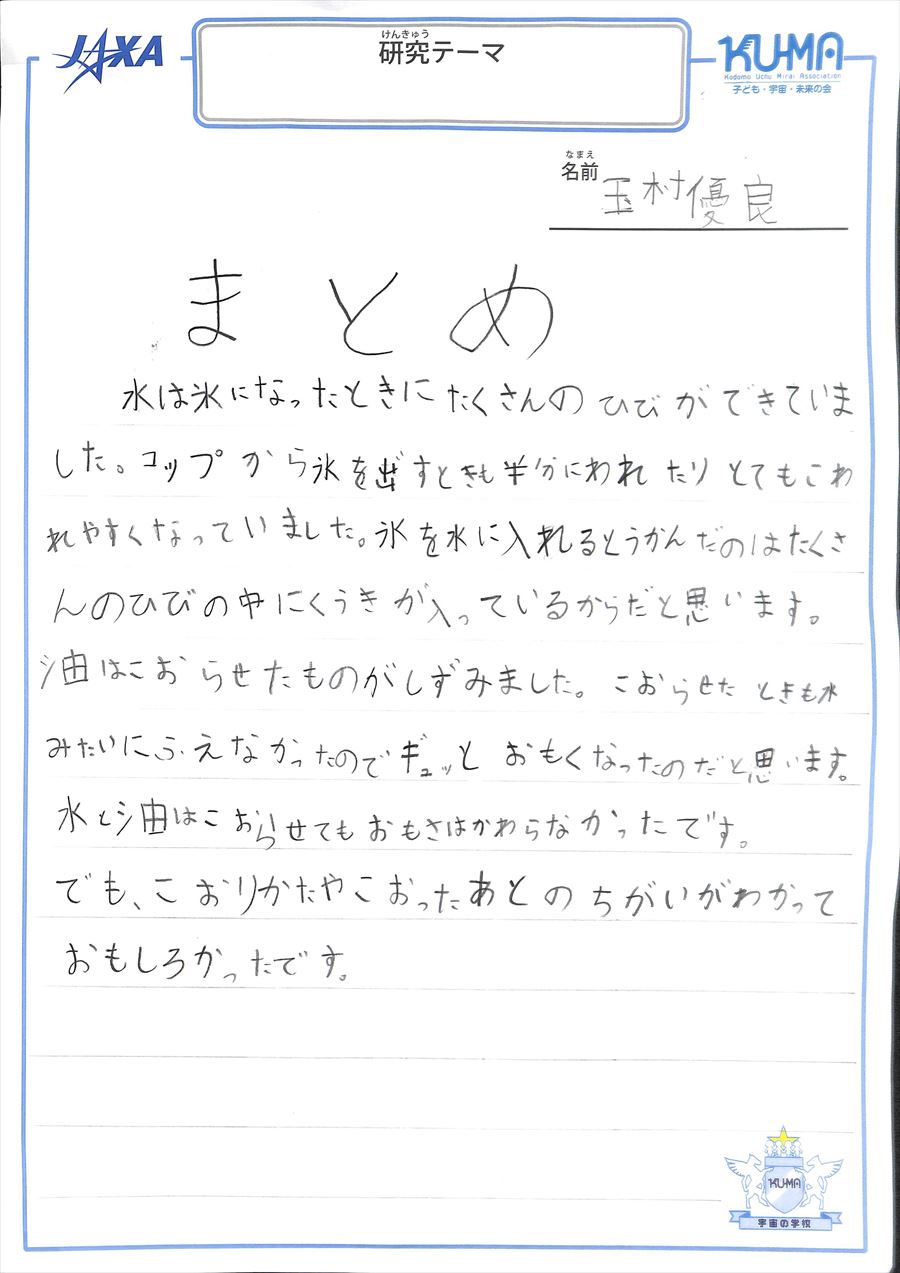 JAXA
けんきゅう
研究テーマ
KU-MA
Kodomo Uchu Mirai Association
子ども・宇宙・未来の会
なまえ
名前 玉村優良
まとめ
水は氷になったときにたくさんのひびができていま
した。コップから氷を出すときも半分にわれたりとてもこわ
れやすくなっていました。氷を水に入れるとうかんだのはたくさ
んのひびの中にくうきが入っているからだと思います。
油はこおらせたものがしずみました。こおらせたときも水
みたいにふえなかったのでギュッとおもくなったのだと思います。
水と油はこおらせてもおもさはかわらなかったです。
でも、こおりかたやこおったあとのちがいがわかって
おもしろかったです。
KU-MA
宇宙の学校